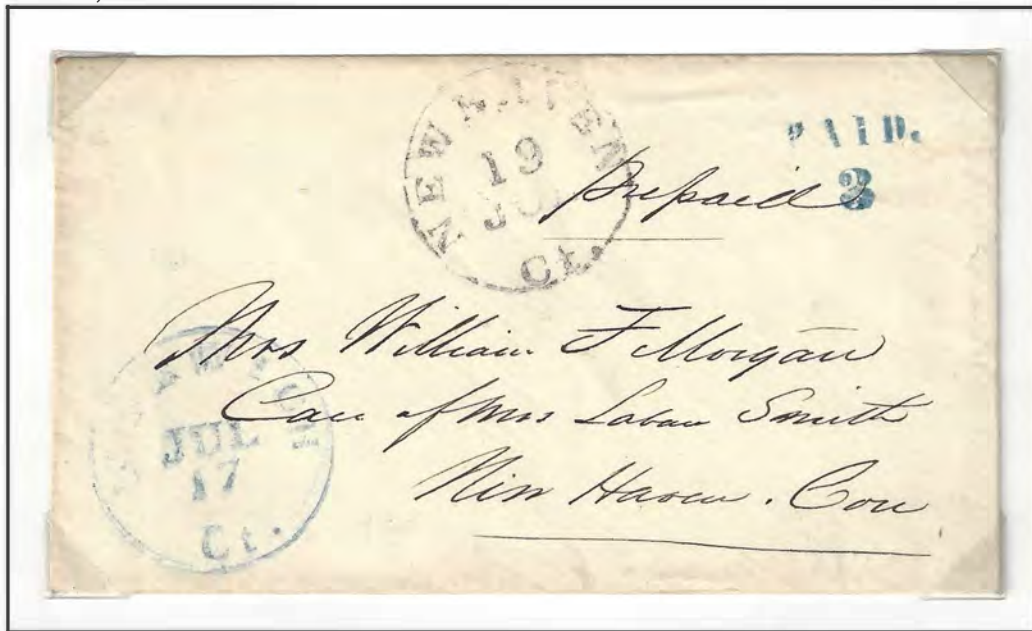 NEW HAVEN
19
JUL
Ct.
PAID.
3
Prepaid
Mrs William F Morgan
Care of Mrs Laban Smith
New Haven. Con
NORWICH
JUL
17
Ct.